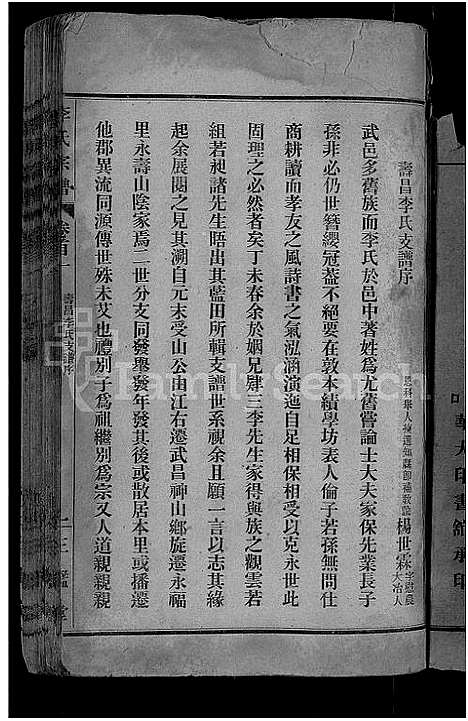 壽昌李氏支譜序
恩科舉人揀選知縣即補教諭楊世霖字慰農大冶人
武邑多舊族而李氏於邑中著姓爲尤舊嘗論士大夫家保先業長子
孫非必仍世簪纓冠蓋不絕要在敦本績學坊表人倫子若孫無問仕
商耕讀而孝友之風詩書之氣泓涵演迤自足相保相受以克永世此
固理之必然者矣丁未春余於姻兄肄三李先生家得與族之觀雲若
組若昶諸先生晤出其藍田所輯支譜世系視余且願一言以志其緣
起余展閱之見其溯自元末受山公由江右遷武昌神山鄉旋遷永福
里永壽山陰家焉二世分支同發舉發年發其後或散居本里或播遷
他郡異流同源傳世殊未艾也禮別子爲祖繼別爲宗又人道親親親
李氏宗譜
卷首一
壽昌李氏支譜序
二三
堂
FamilySearch
大印書館承印